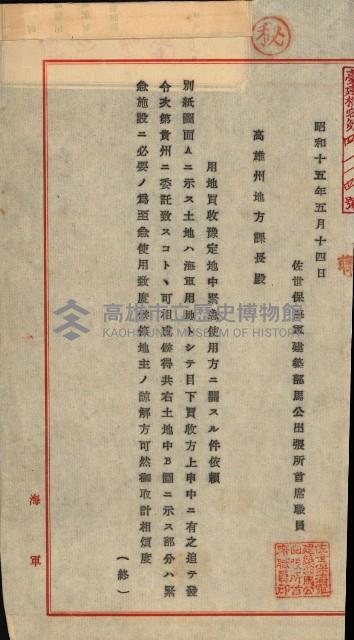 秘
昭和十五年五月十四日
佐世保海軍建築部馬公出張所首席職員
高雄州地方課長殿
用地買收豫定地中緊急使用方ニ關スル件依頼
別紙圖面Aニ示ス土地ハ海軍用地トシテ目下買收方上申中ニ有之追テ發
令次第貴州ニ委託致スコトヽ可相成候得共右土地中B圖ニ示ス部分ハ緊
急施設ニ必要ノ爲至急使用致度候條地主ノ諒解方可然御取計相煩度
(終)
海軍
高雄市立歷史博物館
KAOHSIUNG MUSEUM OF HISTORY